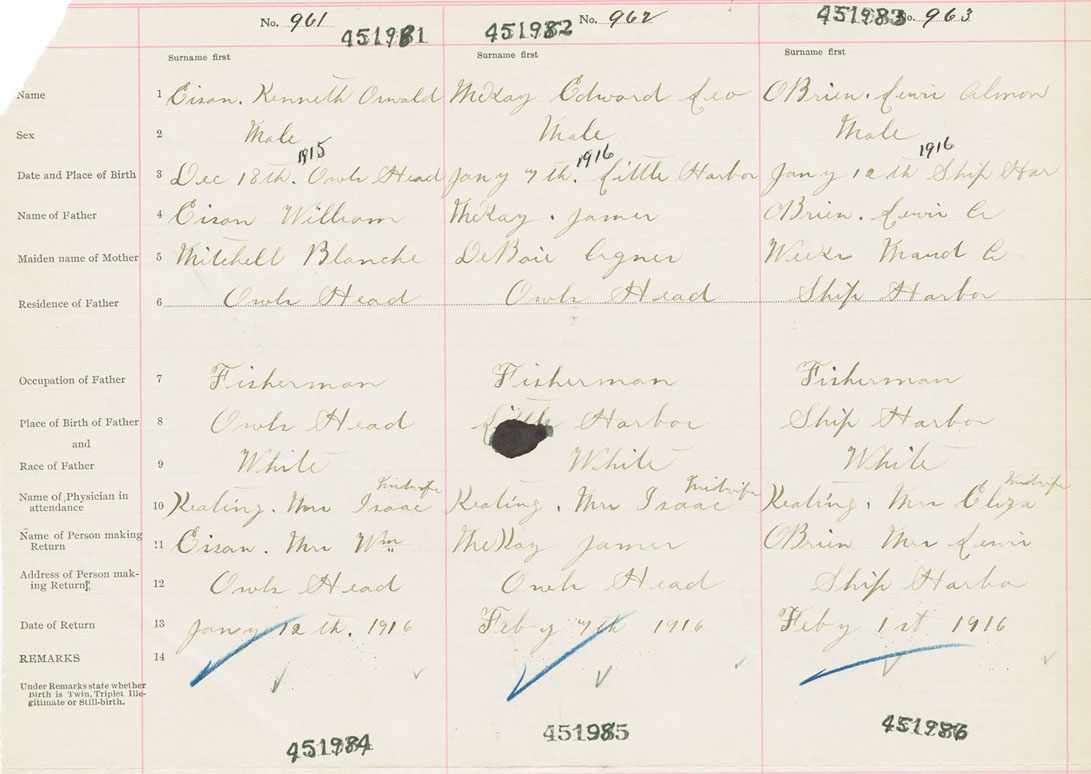 No. 961 451981 451982 No. 962 451983 No. 963
Surname first Surname first Surname first
Name 1 Eisan. Kenneth Oswald McKay Edward Leo OBrien. Lewis Almon
Sex 2 Male Male Male
1915 1916 1916
Date and Place of Birth 3 Dec 18th. Owls Head Jany 7th. Little Harbor Jany 12th Ship Har
Name of Father 4 Eisan William McKay. James OBrien. Lewis A
Maiden name of Mother 5 Mitchell Blanche DeBaie Agnes Weeks Maud A
Residence of Father 6 Owls Head Owls Head Ship Harbor
Occupation of Father 7 Fisherman Fisherman Fisherman
Place of Birth of Father 8 Owls Head Little Harbor Ship Harbor
and
Race of Father 9 White White White
Midwife Midwife Midwife
Name of Physician in
attendance 10 Keating. Mrs Isaac Keating. Mrs Isaac Keating. Mrs Eliza
Name of Person making
Return 11 Eisan. Mrs Wm McKay James OBrien Mrs Lewis
Address of Person mak-
ing Return 12 Owls Head Owls Head Ship Harbor
Date of Return 13 Jany 12th. 1916 Feby 7th 1916 Feby 1st 1916
REMARKS 14
Under Remarks state whether
Birth is Twin, Triplet Ille-
gitimate or Still-birth.
451984 451985 451986